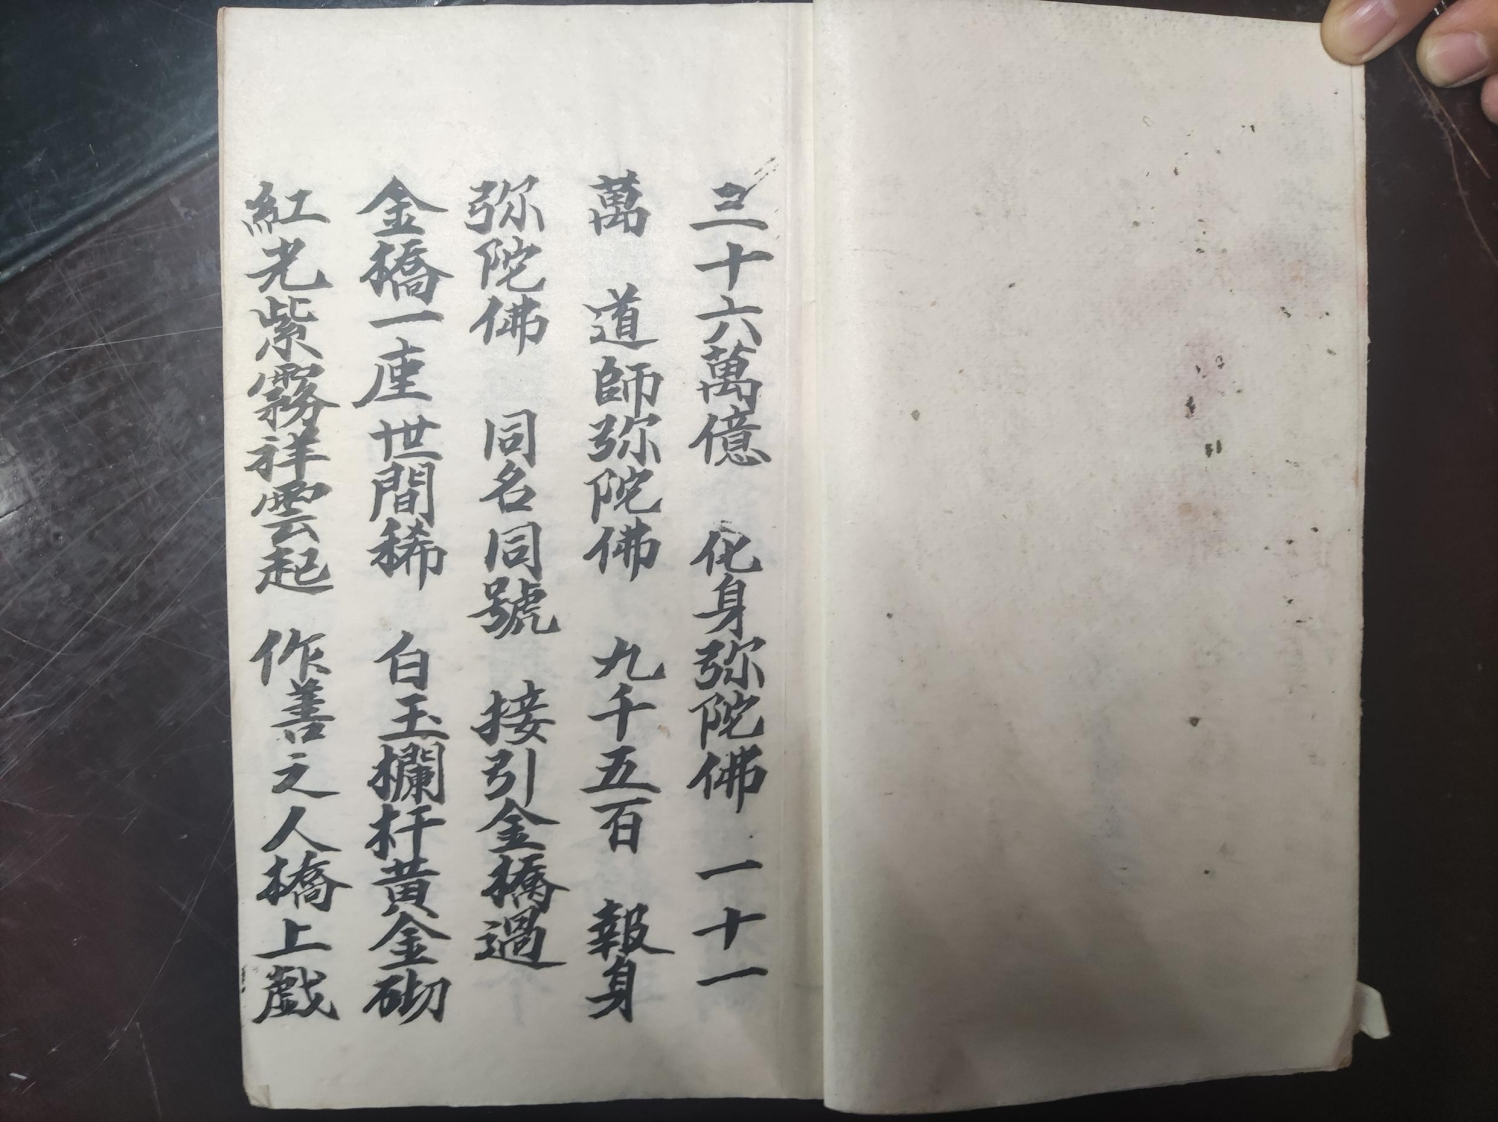 三十六萬億　化身弥陀佛　一十一
萬　道師弥陀佛　九千五百　報身
弥陀佛　同名同號　接引金橋過
金橋一座世間稀　白玉欄杆黃金砌
紅光紫霧祥雲起　作善之人橋上戲